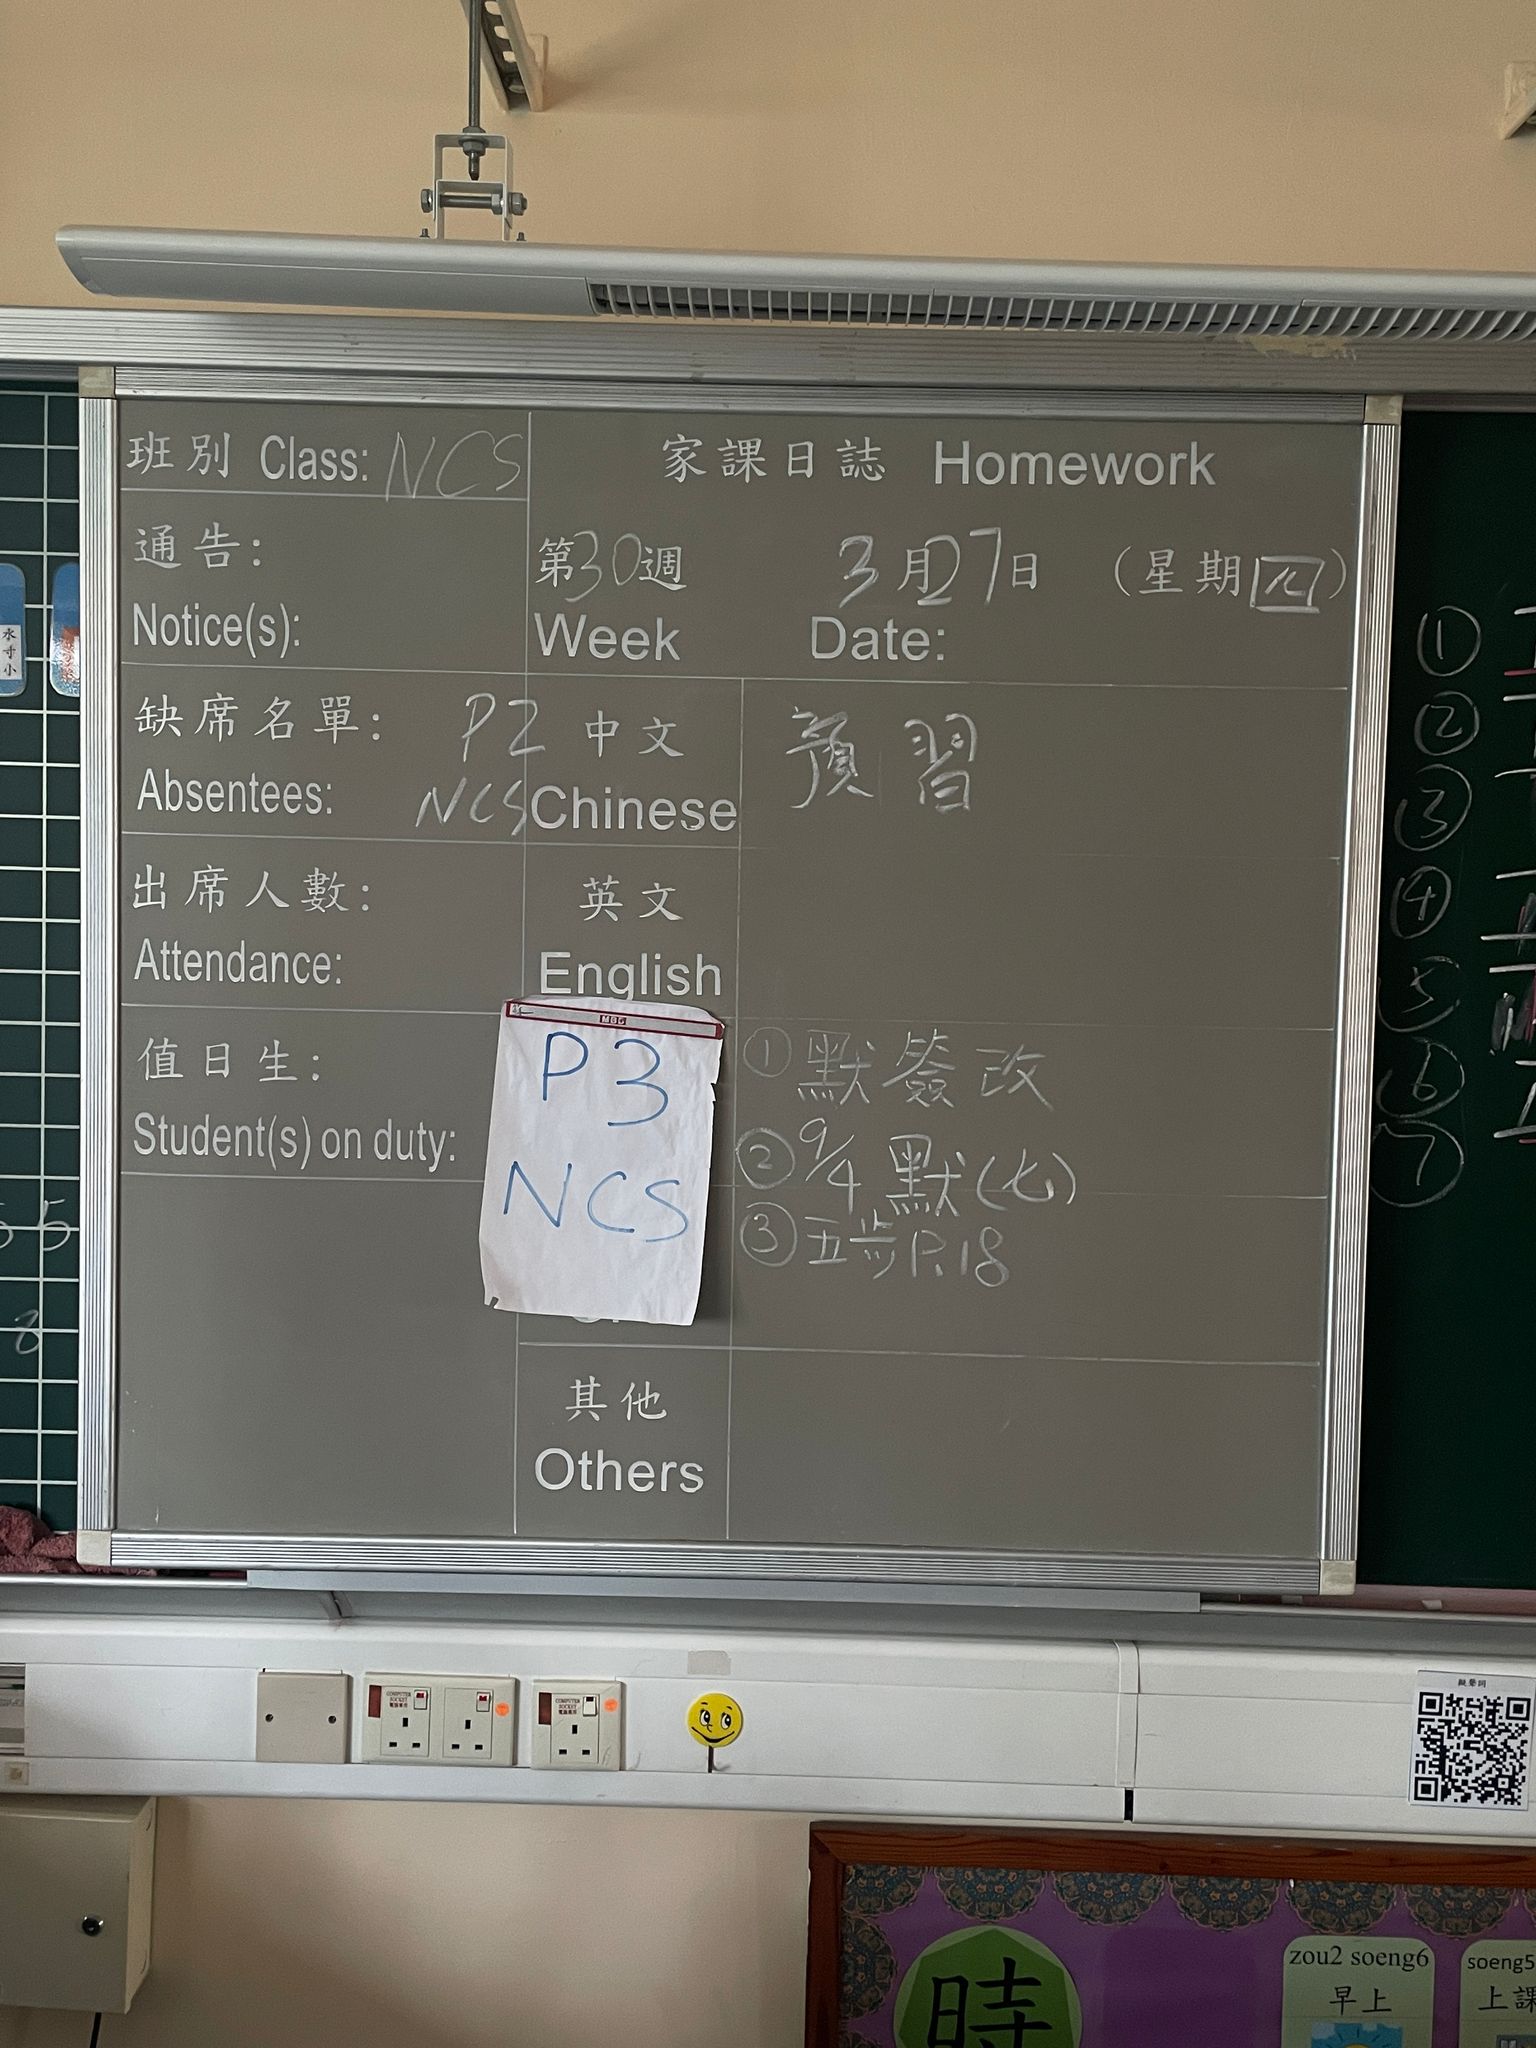 班別 Class: NCS
家課日誌 Homework
通告:
Notice(s):
第30週 3月27日 (星期四)
Week Date:
缺席名單:
Absentees:
P2 中文 預習
NCS Chinese
出席人數:
Attendance:
英文
English
值日生:
Student(s) on duty:
P3
NCS
① 默簽改
② 9/4 默(七)
③ 五步P.18
其他
Others
①
②
③
④
⑤
⑥
⑦
55
8
水
寸
小
COMPUTER
SOCKET
COMPUTER
SOCKET
擬聲詞
時
zou2 soeng6
早上
soeng5
上課